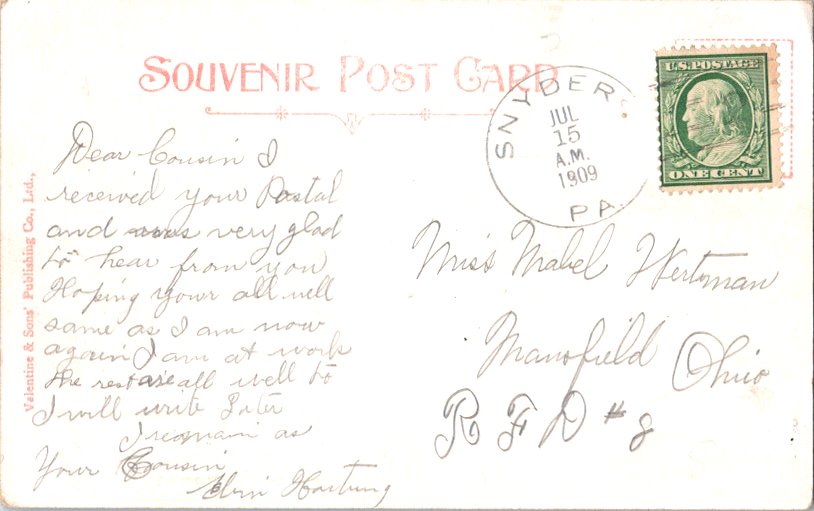 SOUVENIR POST CARD
SNYDERS
JUL
15
A.M.
1909
PA.
U.S. POSTAGE
ONE CENT
Dear Cousin I
received your Postal
and was very glad
to hear from you
Hoping your all well
same as I am now
again I am at work
the rest are all well to
I will write Later
I remain as
Your Cousin
Hartung
Miss Mabel Wertman
Mansfield Ohio
R F D #8
Valentine & Sons' Publishing Co., Ltd.,